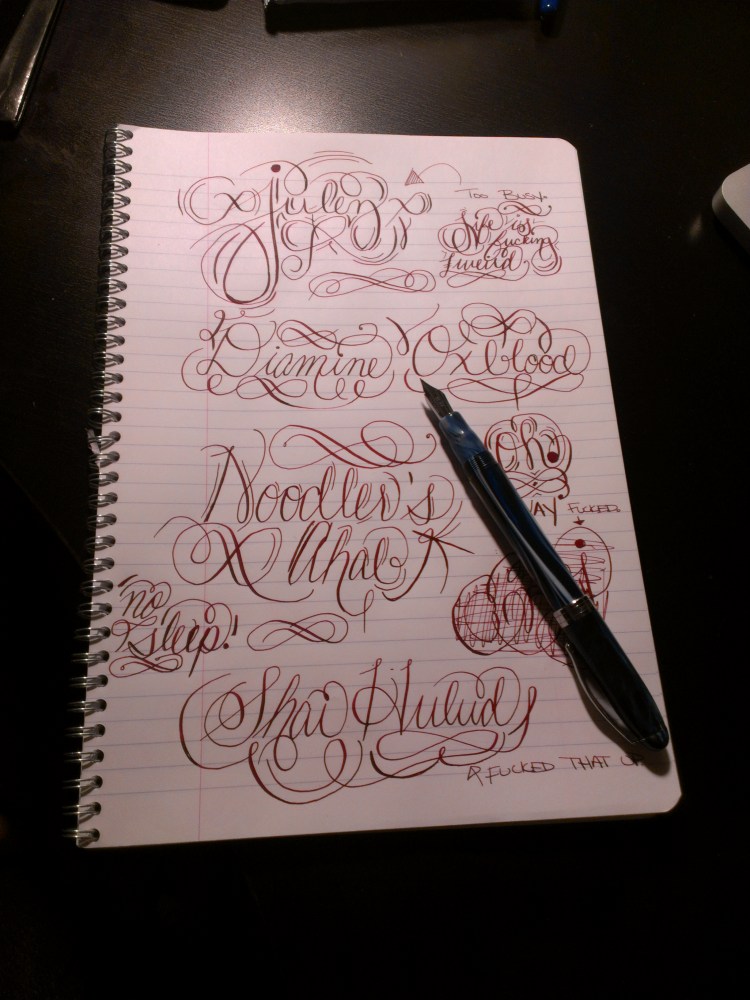 julez
TOO BUSY.
Life is
fucking
weird
Diamine Oxblood
oh
Noodler's
AY FUCKED
Ahab
"no
sleep!"
Shai Hulud
FUCKED THAT U